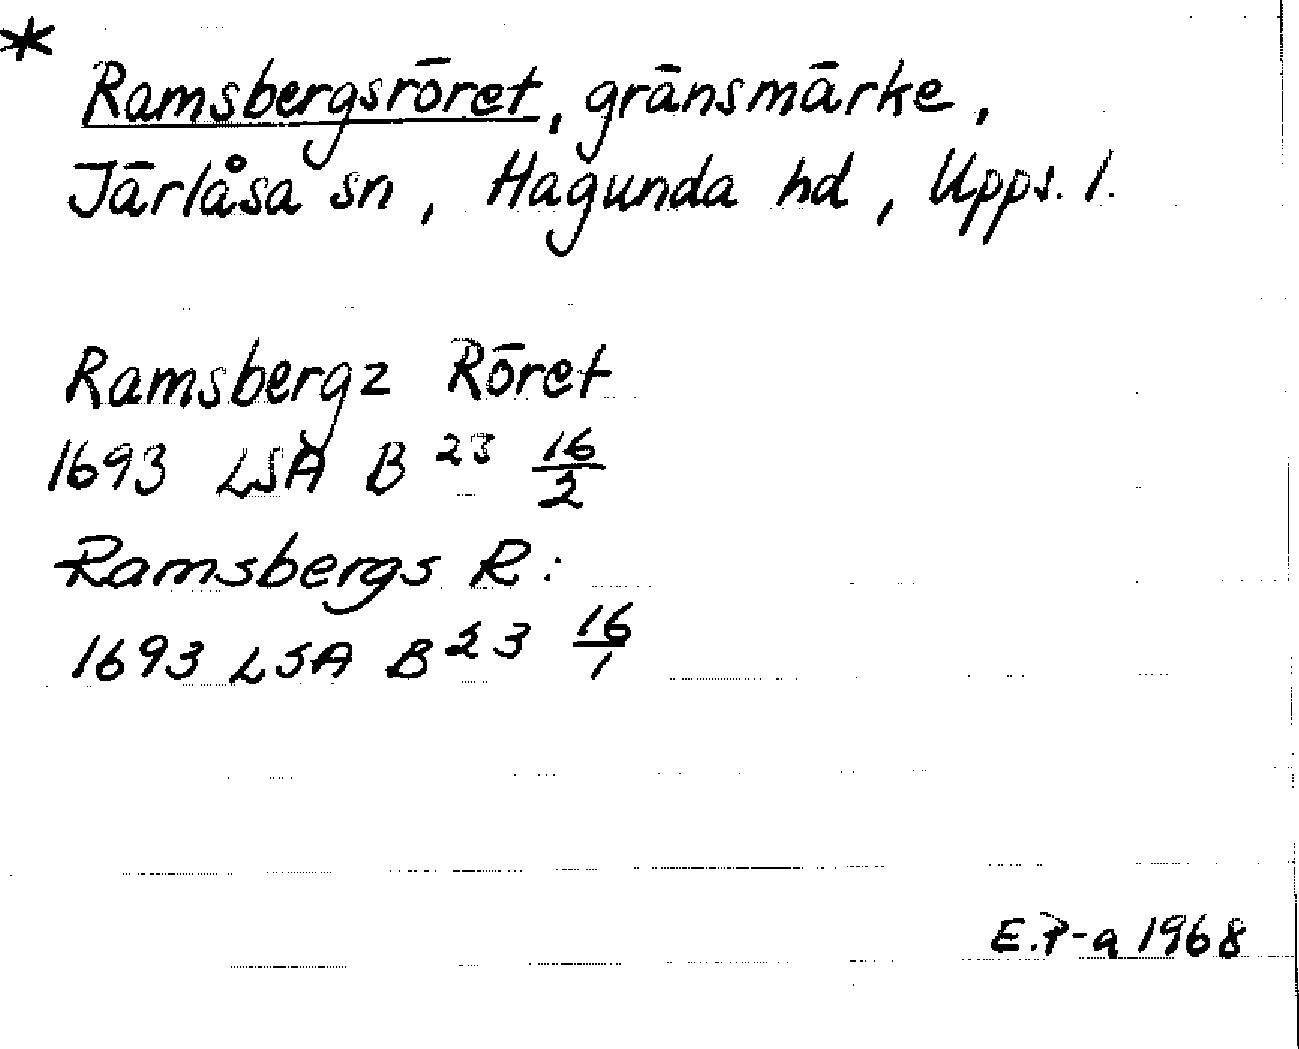 *
Ramsbergsröret, gränsmärke,
Järlåsa sn, Hagunda hd, Upps. l.
Ramsbergz Röret
1693 LSA B 23 16/2
Ramsbergs R:
1693 LSA B 23 16/1
E.P-a 1968